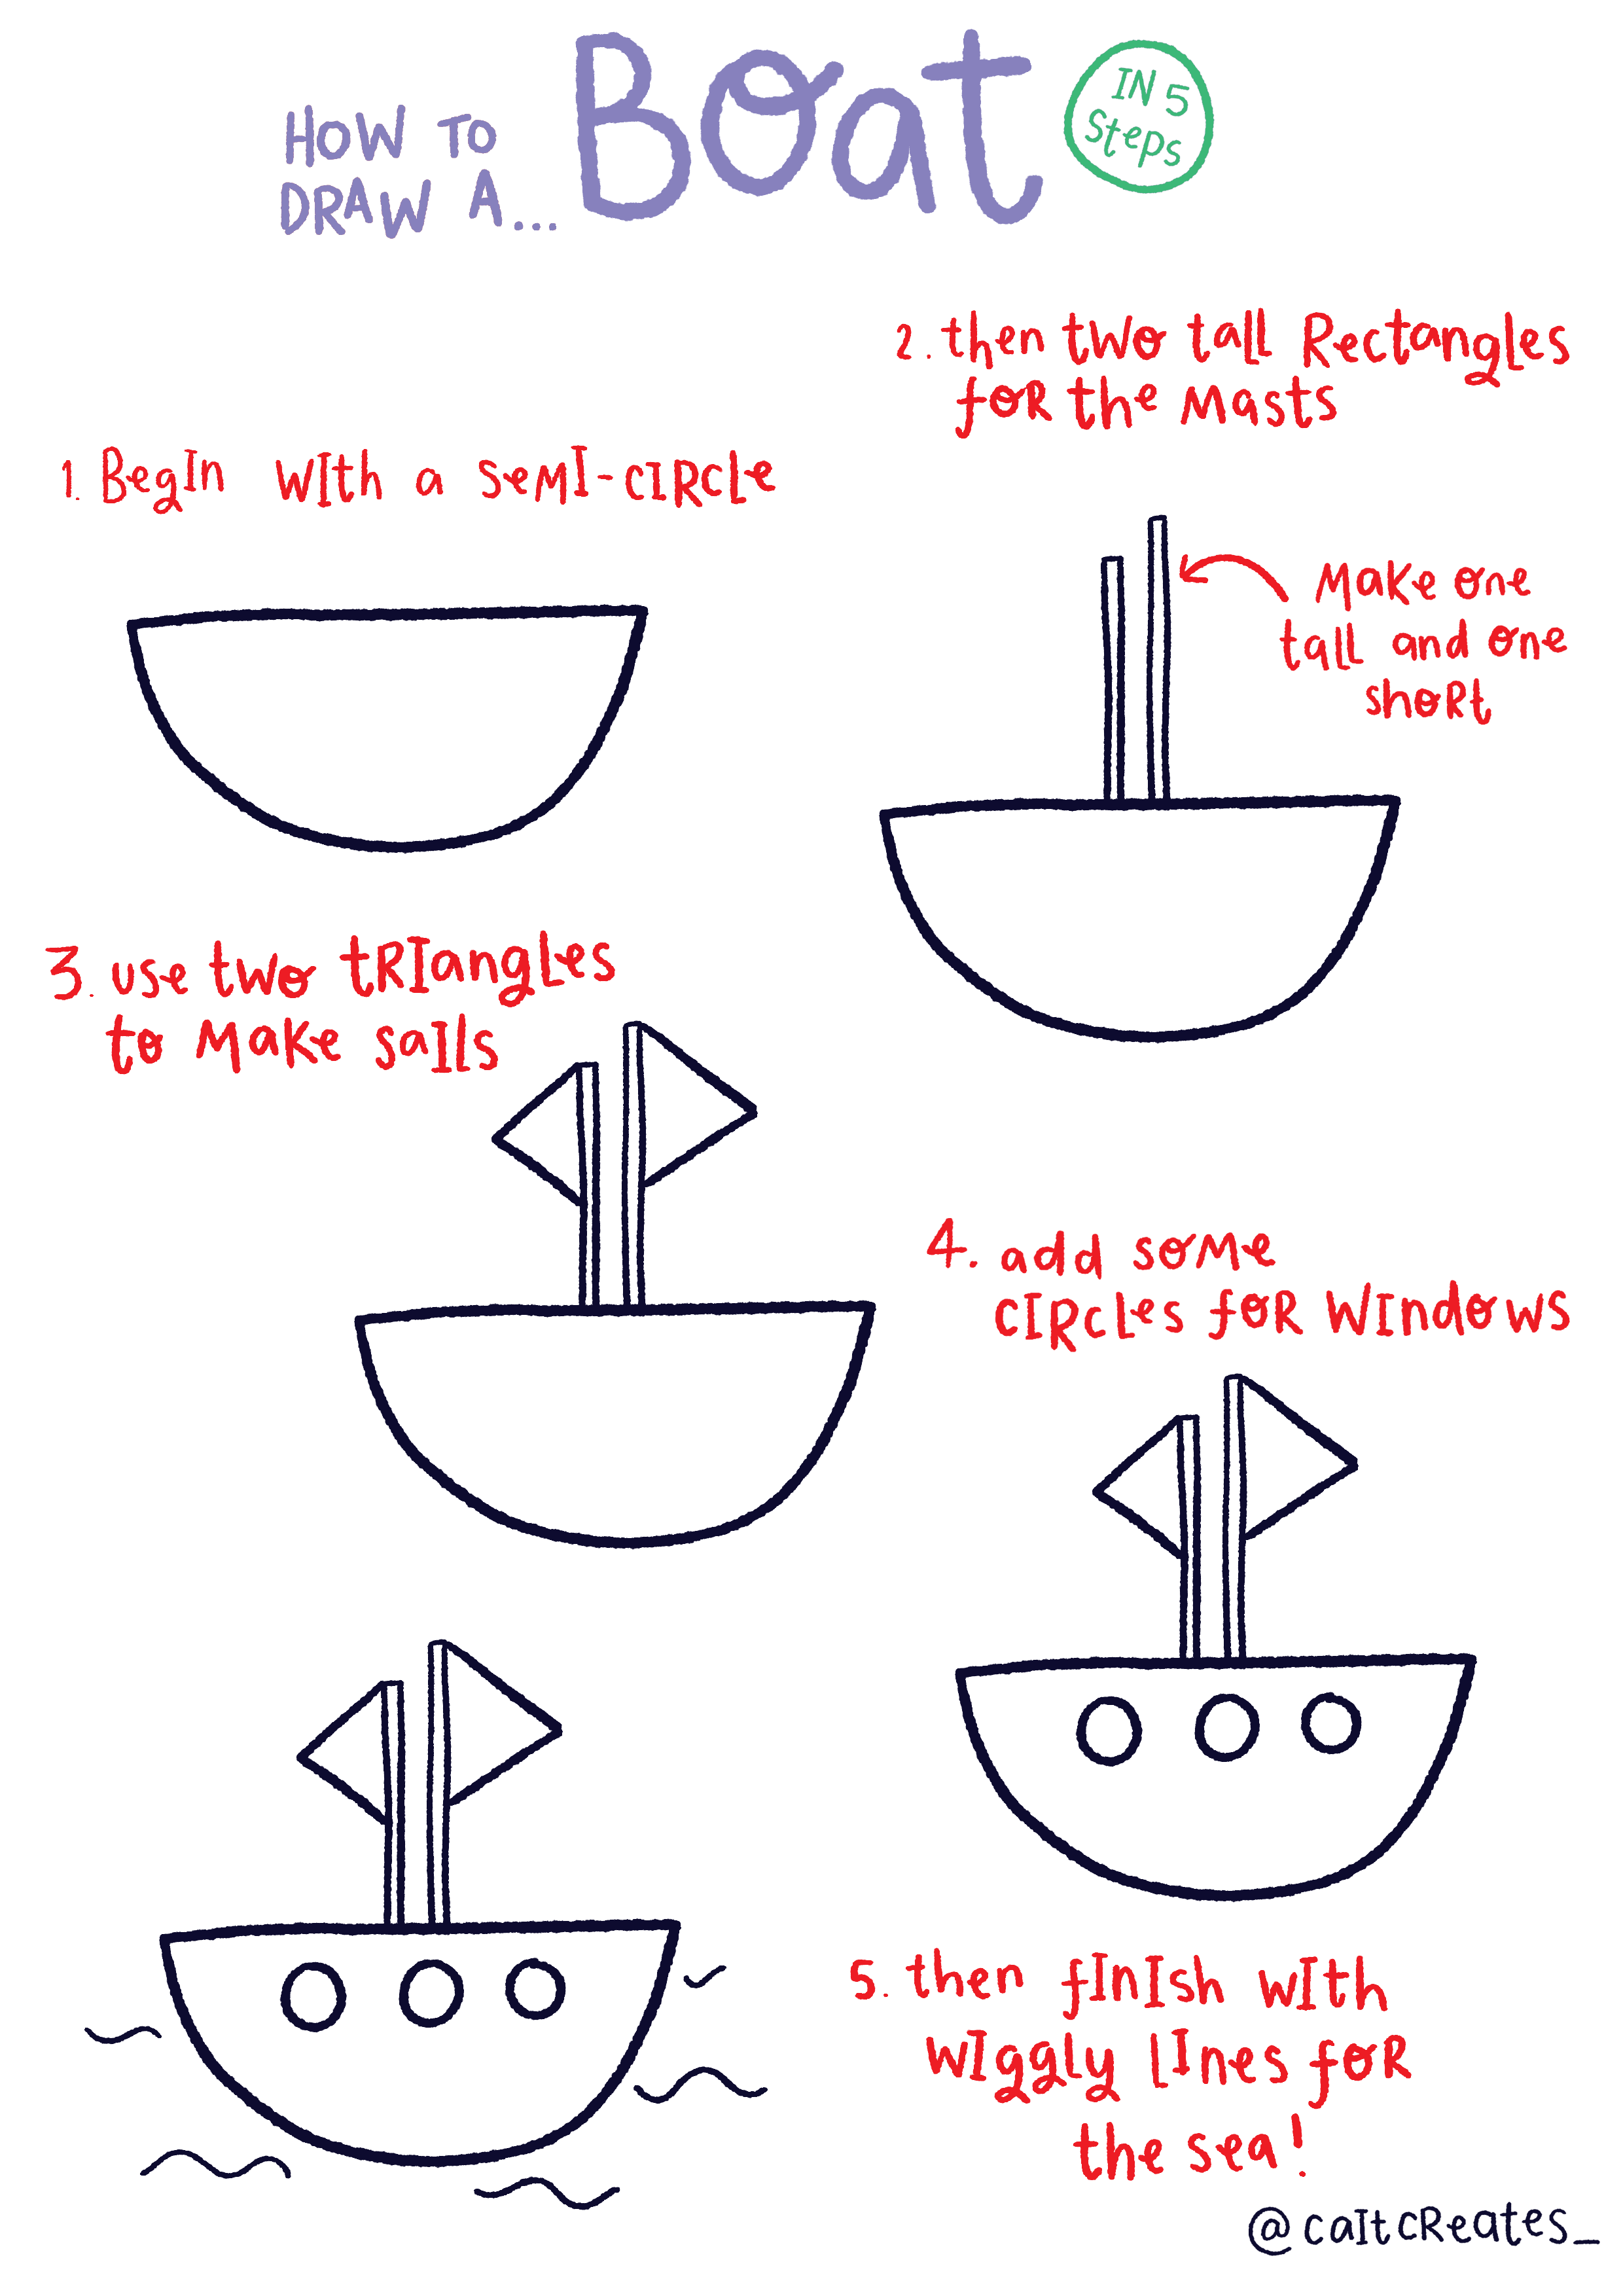 HOW TO
DRAW A...
Boat
IN 5
Steps
1. Begin with a semi-circle
2. then two tall Rectangles
for the masts
Make one
tall and one
short
3. use two triangles
to make sails
4. add some
circles for windows
5. then finish with
wiggly lines for
the sea!
@caitcreates_